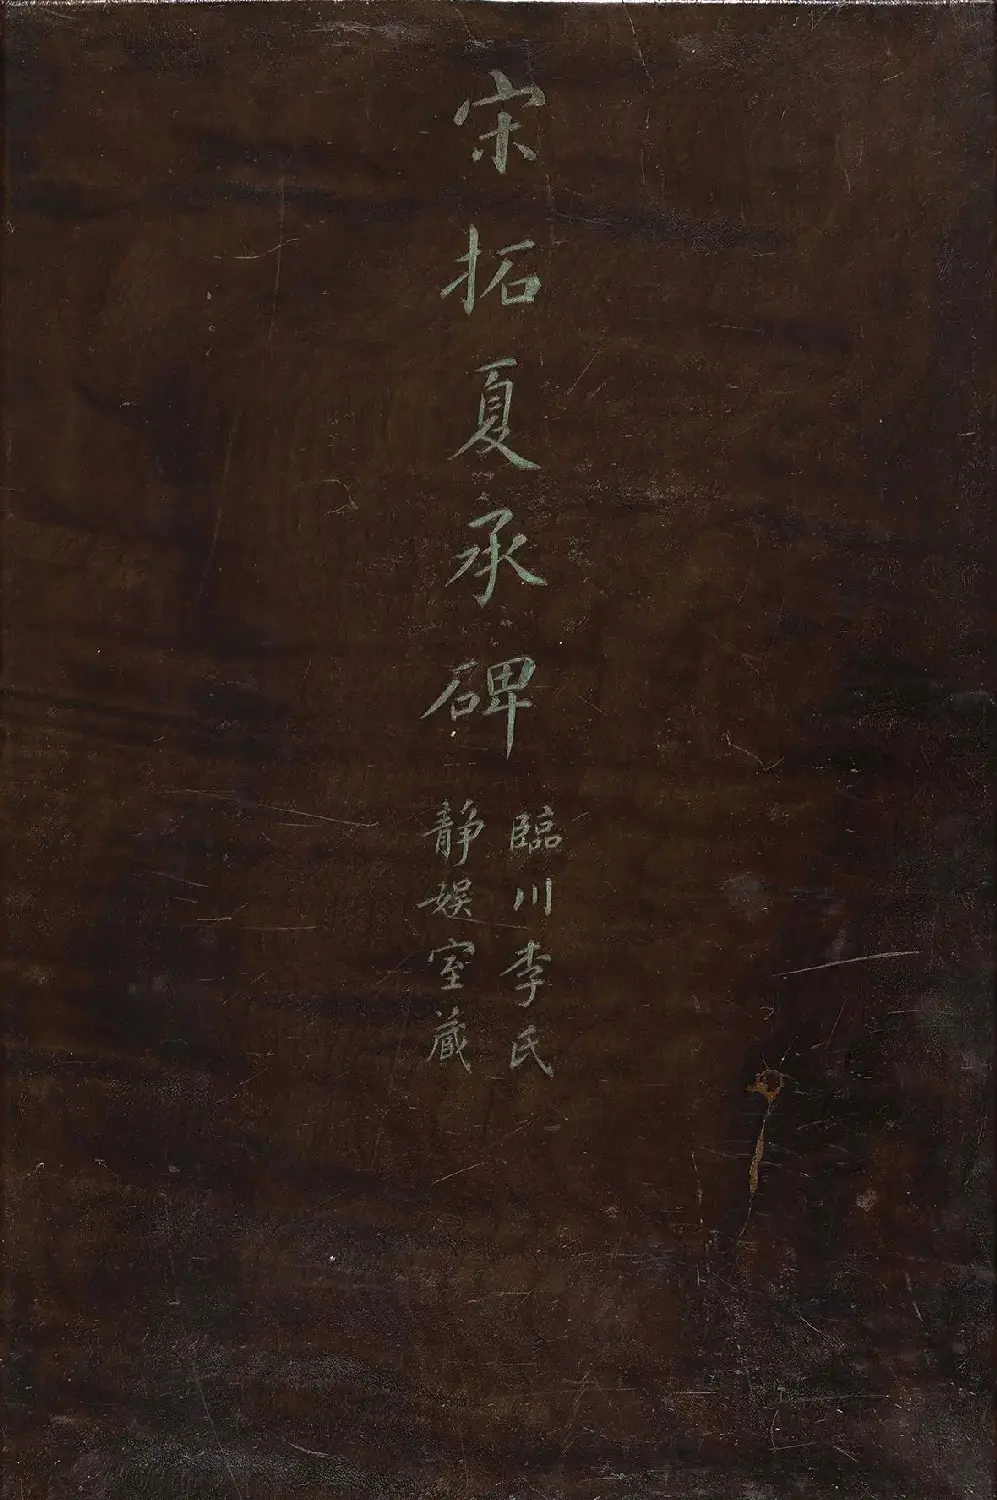 宋拓夏承碑
臨川李氏
靜娛室藏